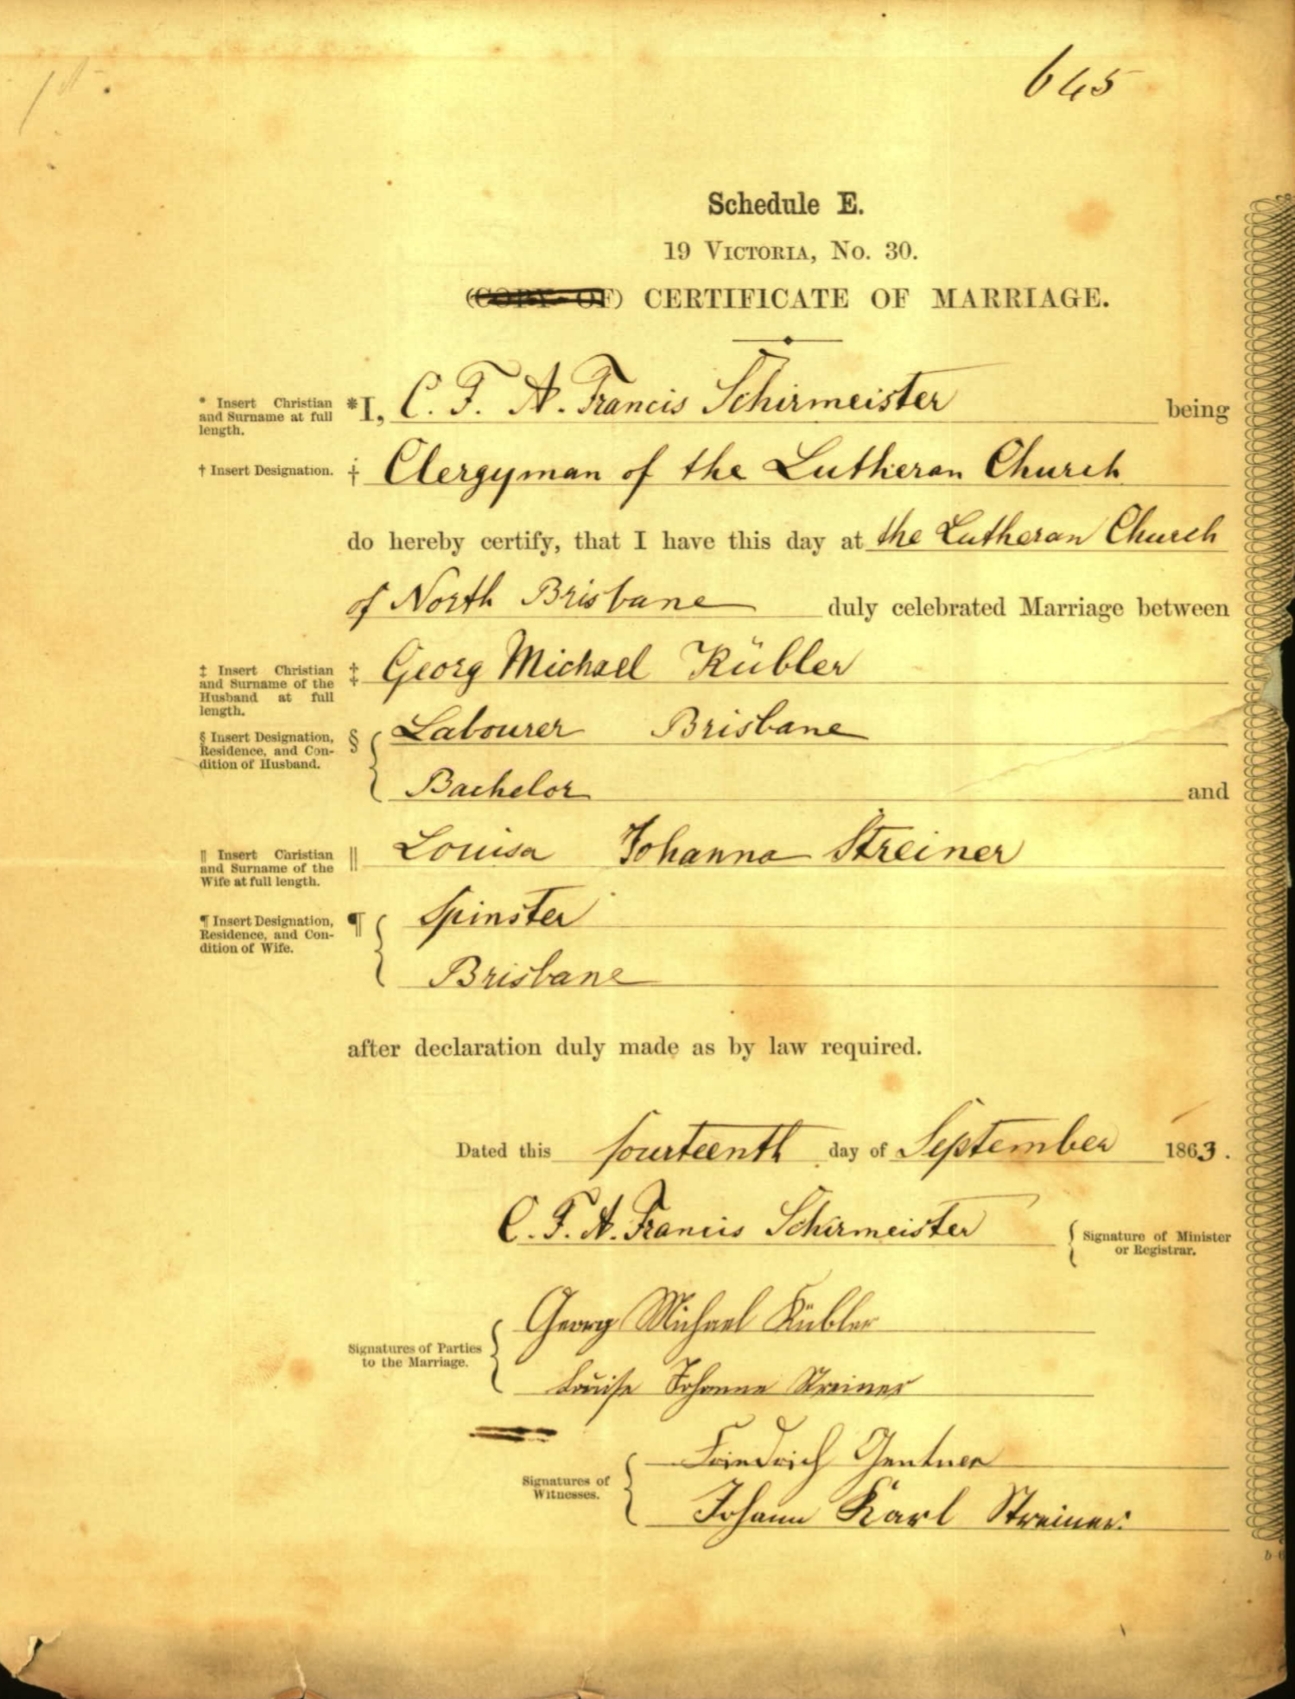 645
Schedule E.
19 VICTORIA, No. 30.
(COPY OF) CERTIFICATE OF MARRIAGE.
* Insert Christian and Surname at full length.
*I, C. F. A. Francis Schirmeister being
† Insert Designation.
† Clergyman of the Lutheran Church
do hereby certify, that I have this day at the Lutheran Church
of North Brisbane duly celebrated Marriage between
‡ Insert Christian and Surname of the Husband at full length.
‡ Georg Michael Kübler
§ Insert Designation, Residence, and Condition of Husband.
§ Labourer Brisbane
Bachelor and
‖ Insert Christian and Surname of the Wife at full length.
‖ Louisa Johanna Streiner
¶ Insert Designation, Residence, and Condition of Wife.
¶ Spinster
Brisbane
after declaration duly made as by law required.
Dated this fourteenth day of September 1863.
C. F. A. Francis Schirmeister
Signature of Minister or Registrar.
Signatures of Parties to the Marriage.
Georg Michael Kübler
Louise Johanne Streiner
Signatures of Witnesses.
Friedrich Gentner
Johann Karl Streiner.